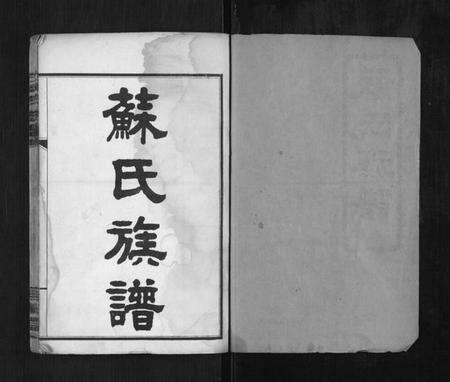 蘇氏族譜